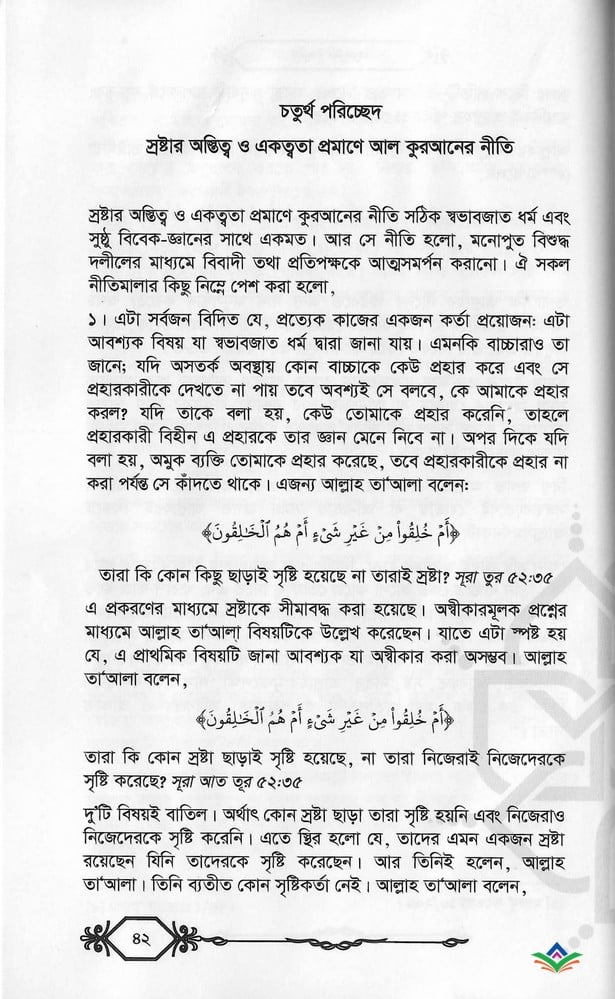 চতুর্থ পরিচ্ছেদ
স্রষ্টার অস্তিত্ব ও একত্বতা প্রমাণে আল কুরআনের নীতি
স্রষ্টার অস্তিত্ব ও একত্বতা প্রমাণে কুরআনের নীতি সঠিক স্বভাবজাত ধর্ম এবং
সুষ্ঠু বিবেক-জ্ঞানের সাথে একমত। আর সে নীতি হলো, মনোপুত বিশুদ্ধ
দলীলের মাধ্যমে বিবাদী তথা প্রতিপক্ষকে আত্মসমর্পন করানো। ঐ সকল
নীতিমালার কিছু নিম্নে পেশ করা হলো,
১। এটা সর্বজন বিদিত যে, প্রত্যেক কাজের একজন কর্তা প্রয়োজন: এটা
আবশ্যক বিষয় যা স্বভাবজাত ধর্ম দ্বারা জানা যায়। এমনকি বাচ্চারাও তা
জানে; যদি অসতর্ক অবস্থায় কোন বাচ্চাকে কেউ প্রহার করে এবং সে
প্রহারকারীকে দেখতে না পায় তবে অবশ্যই সে বলবে, কে আমাকে প্রহার
করল? যদি তাকে বলা হয়, কেউ তোমাকে প্রহার করেনি, তাহলে
প্রহারকারী বিহীন এ প্রহারকে তার জ্ঞান মেনে নিবে না। অপর দিকে যদি
বলা হয়, অমুক ব্যক্তি তোমাকে প্রহার করেছে, তবে প্রহারকারীকে প্রহার না
করা পর্যন্ত সে কাঁদতে থাকে। এজন্য আল্লাহ তা'আলা বলেন:
﴿أَمۡ خُلِقُواْ مِنۡ غَيۡرِ شَيۡءٍ أَمۡ هُمُ ٱلۡخَٰلِقُونَ﴾
তারা কি কোন কিছু ছাড়াই সৃষ্টি হয়েছে না তারাই স্রষ্টা? সূরা তুর ৫২:৩৫
এ প্রকরণের মাধ্যমে স্রষ্টাকে সীমাবদ্ধ করা হয়েছে। অস্বীকারমূলক প্রশ্নের
মাধ্যমে আল্লাহ তা'আলা বিষয়টিকে উল্লেখ করেছেন। যাতে এটা স্পষ্ট হয়
যে, এ প্রাথমিক বিষয়টি জানা আবশ্যক যা অস্বীকার করা অসম্ভব। আল্লাহ
তা'আলা বলেন,
﴿أَمۡ خُلِقُواْ مِنۡ غَيۡرِ شَيۡءٍ أَمۡ هُمُ ٱلۡخَٰلِقُونَ﴾
তারা কি কোন স্রষ্টা ছাড়াই সৃষ্টি হয়েছে, না তারা নিজেরাই নিজেদেরকে
সৃষ্টি করেছে? সূরা আত তূর ৫২:৩৫
দু'টি বিষয়ই বাতিল। অর্থাৎ কোন স্রষ্টা ছাড়া তারা সৃষ্টি হয়নি এবং নিজেরাও
নিজেদেরকে সৃষ্টি করেনি। এতে স্থির হলো যে, তাদের এমন একজন স্রষ্টা
রয়েছেন যিনি তাদেরকে সৃষ্টি করেছেন। আর তিনিই হলেন, আল্লাহ
তা'আলা। তিনি ব্যতীত কোন সৃষ্টিকর্তা নেই। আল্লাহ তা'আলা বলেন,
৪২